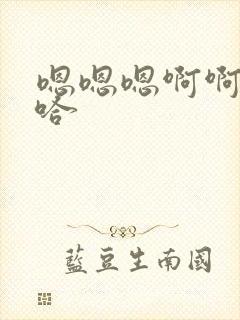 嗯嗯嗯啊啊
哈
藍豆生南國